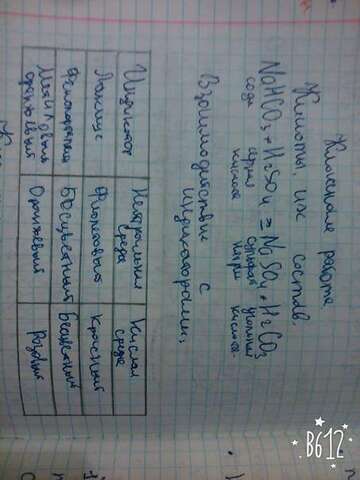 Классная работа
Кислоты, их состав.
NaHCO3 + H2SO4 = NaSO4 + H2CO3
сода серная кислота сульфат натрия угольная кислота
Взаимодействие с
индикаторами.
Индикатор Нейтральная среда Кислая среда
Лакмус Фиолетовый Красный
Фенолфталеин Бесцветный Бесцветный
Метиловый оранжевый Оранжевый Розовый
B612